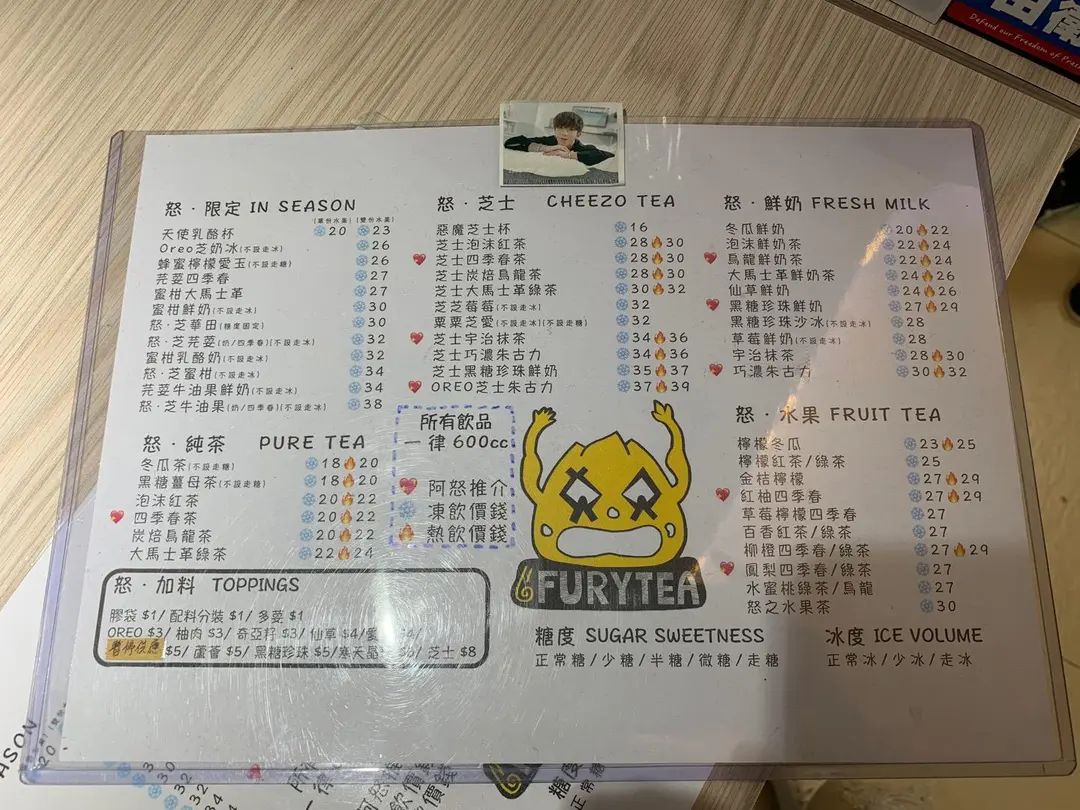 Defend our Freedom of Press
怒・限定 IN SEASON
(單份水果) (雙份水果)
天使乳酪杯 20 23
Oreo芝奶冰(不設走冰) 26
蜂蜜檸檬愛玉(不設走糖) 26
芫荽四季春 27
蜜柑大馬士革 27
蜜柑鮮奶(不設走冰) 30
怒・芝華田(糖度固定) 30
怒・芝芫荽(奶/四季春)(不設走冰) 32
蜜柑乳酪奶(不設走冰) 32
怒・芝蜜柑(不設走冰) 34
芫荽牛油果鮮奶(不設走冰) 34
怒・芝牛油果(奶/四季春)(不設走冰) 38
怒・純茶 PURE TEA
冬瓜茶(不設走糖) 18 20
黑糖薑母茶(不設走糖) 18 20
泡沫紅茶 20 22
四季春茶 20 22
炭焙烏龍茶 20 22
大馬士革綠茶 22 24
怒・加料 TOPPINGS
膠袋 $1/ 配料分裝 $1/ 多荽 $1
OREO $3/ 柚肉 $3/ 奇亞籽 $3/ 仙草 $4/
暫停供應 $5/ 蘆薈 $5/ 黑糖珍珠 $5/寒天晶 芝士 $8
怒・芝士 CHEEZO TEA
惡魔芝士杯 16
芝士泡沫紅茶 28 30
芝士四季春茶 28 30
芝士炭焙烏龍茶 28 30
芝士大馬士革綠茶 30 32
芝芝莓莓(不設走冰) 32
粟粟芝愛(不設走冰)(不設走糖) 32
芝士宇治抹茶 34 36
芝士巧濃朱古力 34 36
芝士黑糖珍珠鮮奶 35 37
OREO芝士朱古力 37 39
所有飲品
一律 600cc
阿怒推介
凍飲價錢
熱飲價錢
FURYTEA
怒・鮮奶 FRESH MILK
冬瓜鮮奶 20 22
泡沫鮮奶茶 22 24
烏龍鮮奶茶 22 24
大馬士革鮮奶茶 24 26
仙草鮮奶 24 26
黑糖珍珠鮮奶 27 29
黑糖珍珠沙冰(不設走冰) 28
草莓鮮奶(不設走冰) 28
宇治抹茶 28 30
巧濃朱古力 30 32
怒・水果 FRUIT TEA
檸檬冬瓜 23 25
檸檬紅茶/綠茶 25
金桔檸檬 27 29
紅柚四季春 27 29
草莓檸檬四季春 27
百香紅茶/綠茶 27
柳橙四季春/綠茶 27 29
鳳梨四季春/綠茶 27
水蜜桃綠茶/烏龍 27
怒之水果茶 30
糖度 SUGAR SWEETNESS
正常糖/少糖/半糖/微糖/走糖
冰度 ICE VOLUME
正常冰/少冰/走冰